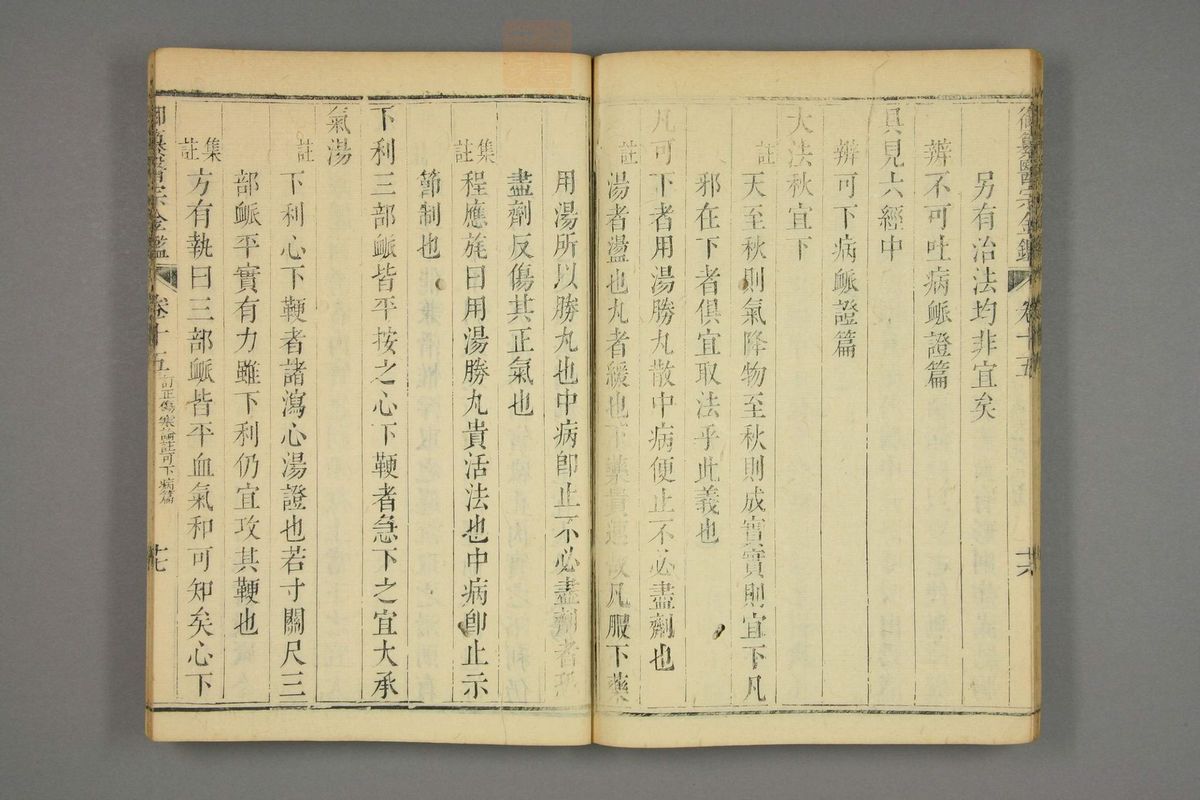 御纂醫宗金鑑 卷十五 十六
另有治法均非宜矣
辨不可吐病脈證篇
具見六經中
辨可下病脈證篇
大法秋宜下
註 天至秋則氣降物至秋則成實實則宜下凡
邪在下者俱宜取法乎此義也
凡可下者用湯勝丸散中病便止不必盡劑也
註 湯者盪也丸者緩也下藥貴速故凡服下藥
用湯所以勝丸也中病卽止不必盡劑者恐
盡劑反傷其正氣也
集註 程應旄曰用湯勝丸貴活法也中病卽止示
節制也
下利三部脈皆平按之心下鞕者急下之宜大承
氣湯
註 下利心下鞕者諸瀉心湯證也若寸關尺三
部脈平實有力雖下利仍宜攻其鞕也
集註 方有執曰三部脈皆平血氣和可知矣心下
御纂醫宗金鑑 卷十五 訂正傷寒論註可下病篇 十七